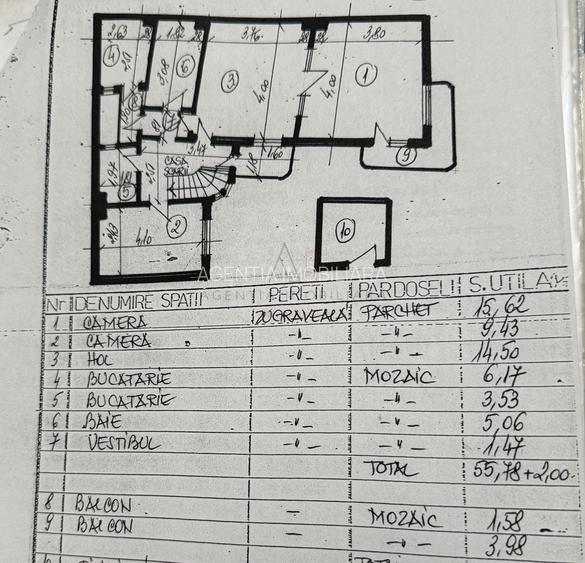 2,63 28 1,82 28 3,76 28 28 3,80
4 6 3 1
3,08 4,00 4,00
8 7
3,47 1,60 9
CASA
SCARII
1,97 5
2 10
2,63 4,10
AGENTIA IMOBILIARA
Nr DENUMIRE SPATII PERETI PARDOSELI S.UTILA
1 CAMERA ZUGRAVEALA PARCHET 15,62
2 CAMERA -"- -"- 9,43
3 HOL -"- -"- 14,50
4 BUCATARIE -"- MOZAIC 6,17
5 BUCATARIE -"- -"- 3,53
6 BAIE -"- -"- 5,06
7 VESTIBUL -"- -"- 1,47
TOTAL 55,78+2,00
8 BALCON - MOZAIC 1,58
9 BALCON - -"- 3,98